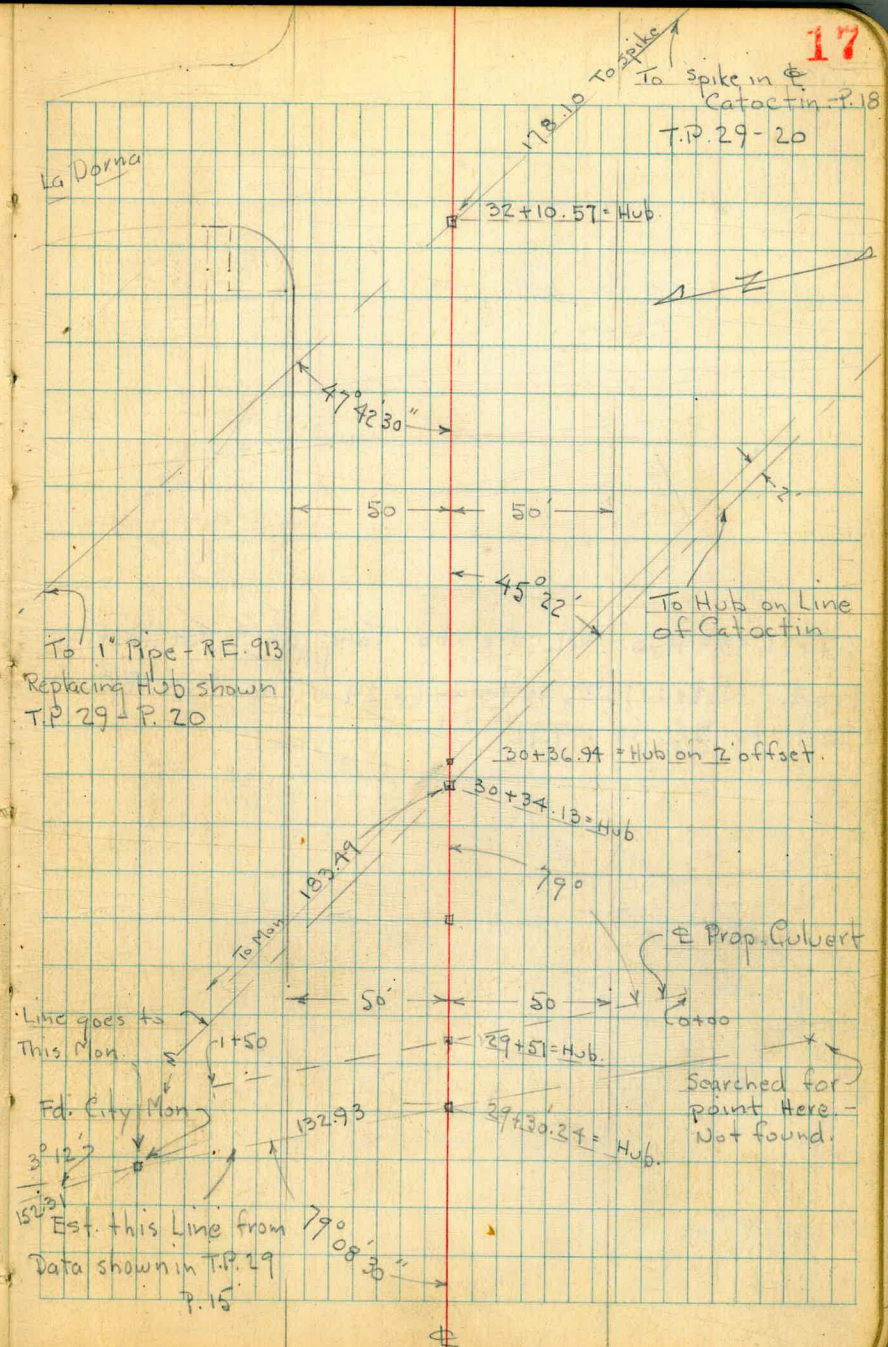 17
178.10 To Spike
To spike in ℄
Catoctin - P. 18
T.P. 29-20
La Dorna
32+10.57 = Hub.
N
47° 42' 30"
50
50'
2'
45° 22'
To Hub on Line
of Catoctin
To 1" Pipe - R.E. 913
Replacing Hub shown
T.P. 29 - P. 20
30+36.94 = Hub on 2' offset.
30+34.13 = Hub
183.49
To Mon
79°
℄ Prop. Culvert
50'
50
0+00
Line goes to
This Mon.
1+50
29+51 = Hub.
Searched for
point Here -
Not found.
Fd. City Mon
132.93
29+30.24 = Hub.
3° 12'
152.31
Est. this Line from
Data shown in T.P. 29
P. 15
79° 08' 30"
℄